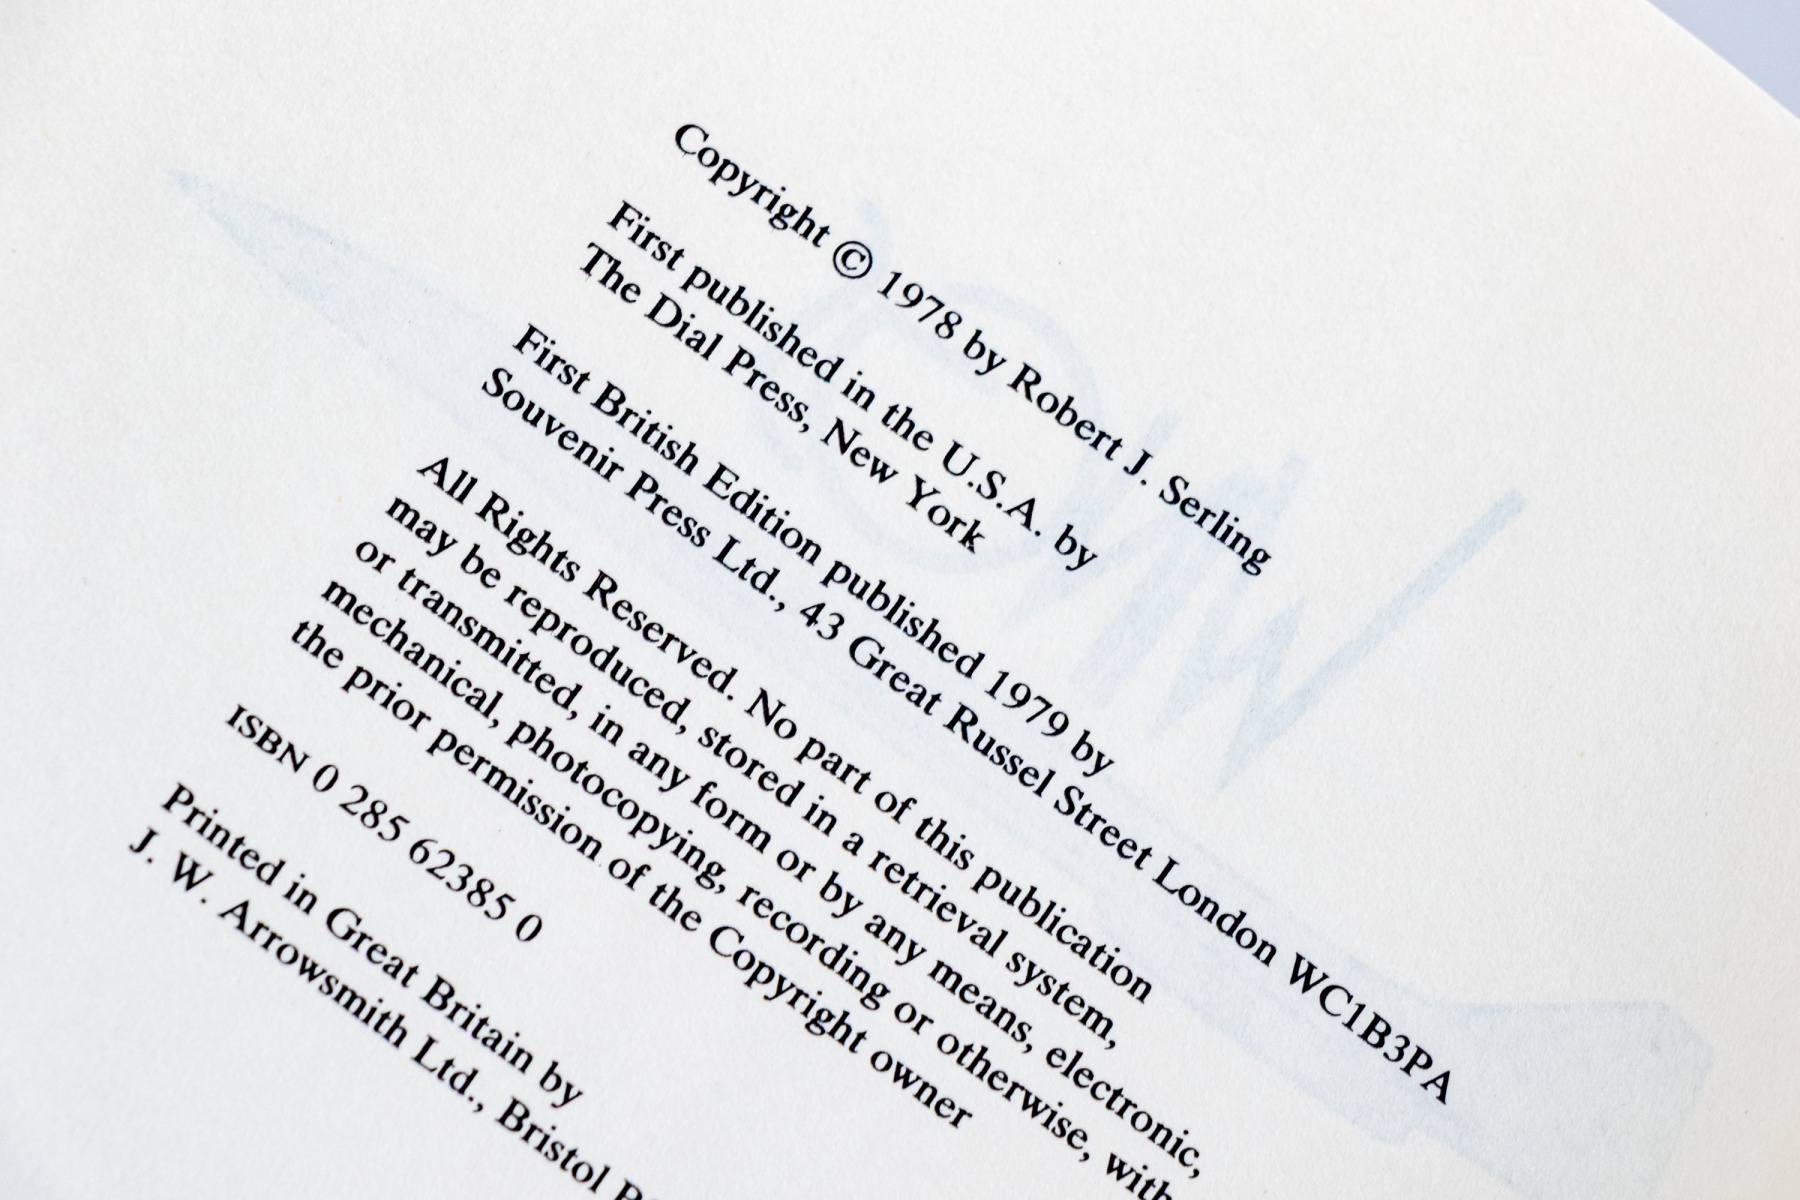 Copyright © 1978 by Robert J. Serling
First published in the U.S.A. by
The Dial Press, New York
First British Edition published 1979 by
Souvenir Press Ltd., 43 Great Russel Street London WC1B3PA
All Rights Reserved. No part of this publication
may be reproduced, stored in a retrieval system,
or transmitted, in any form or by any means, electronic,
mechanical, photocopying, recording or otherwise, with
the prior permission of the Copyright owner
ISBN 0 285 62385 0
Printed in Great Britain by
J. W. Arrowsmith Ltd., Bristol